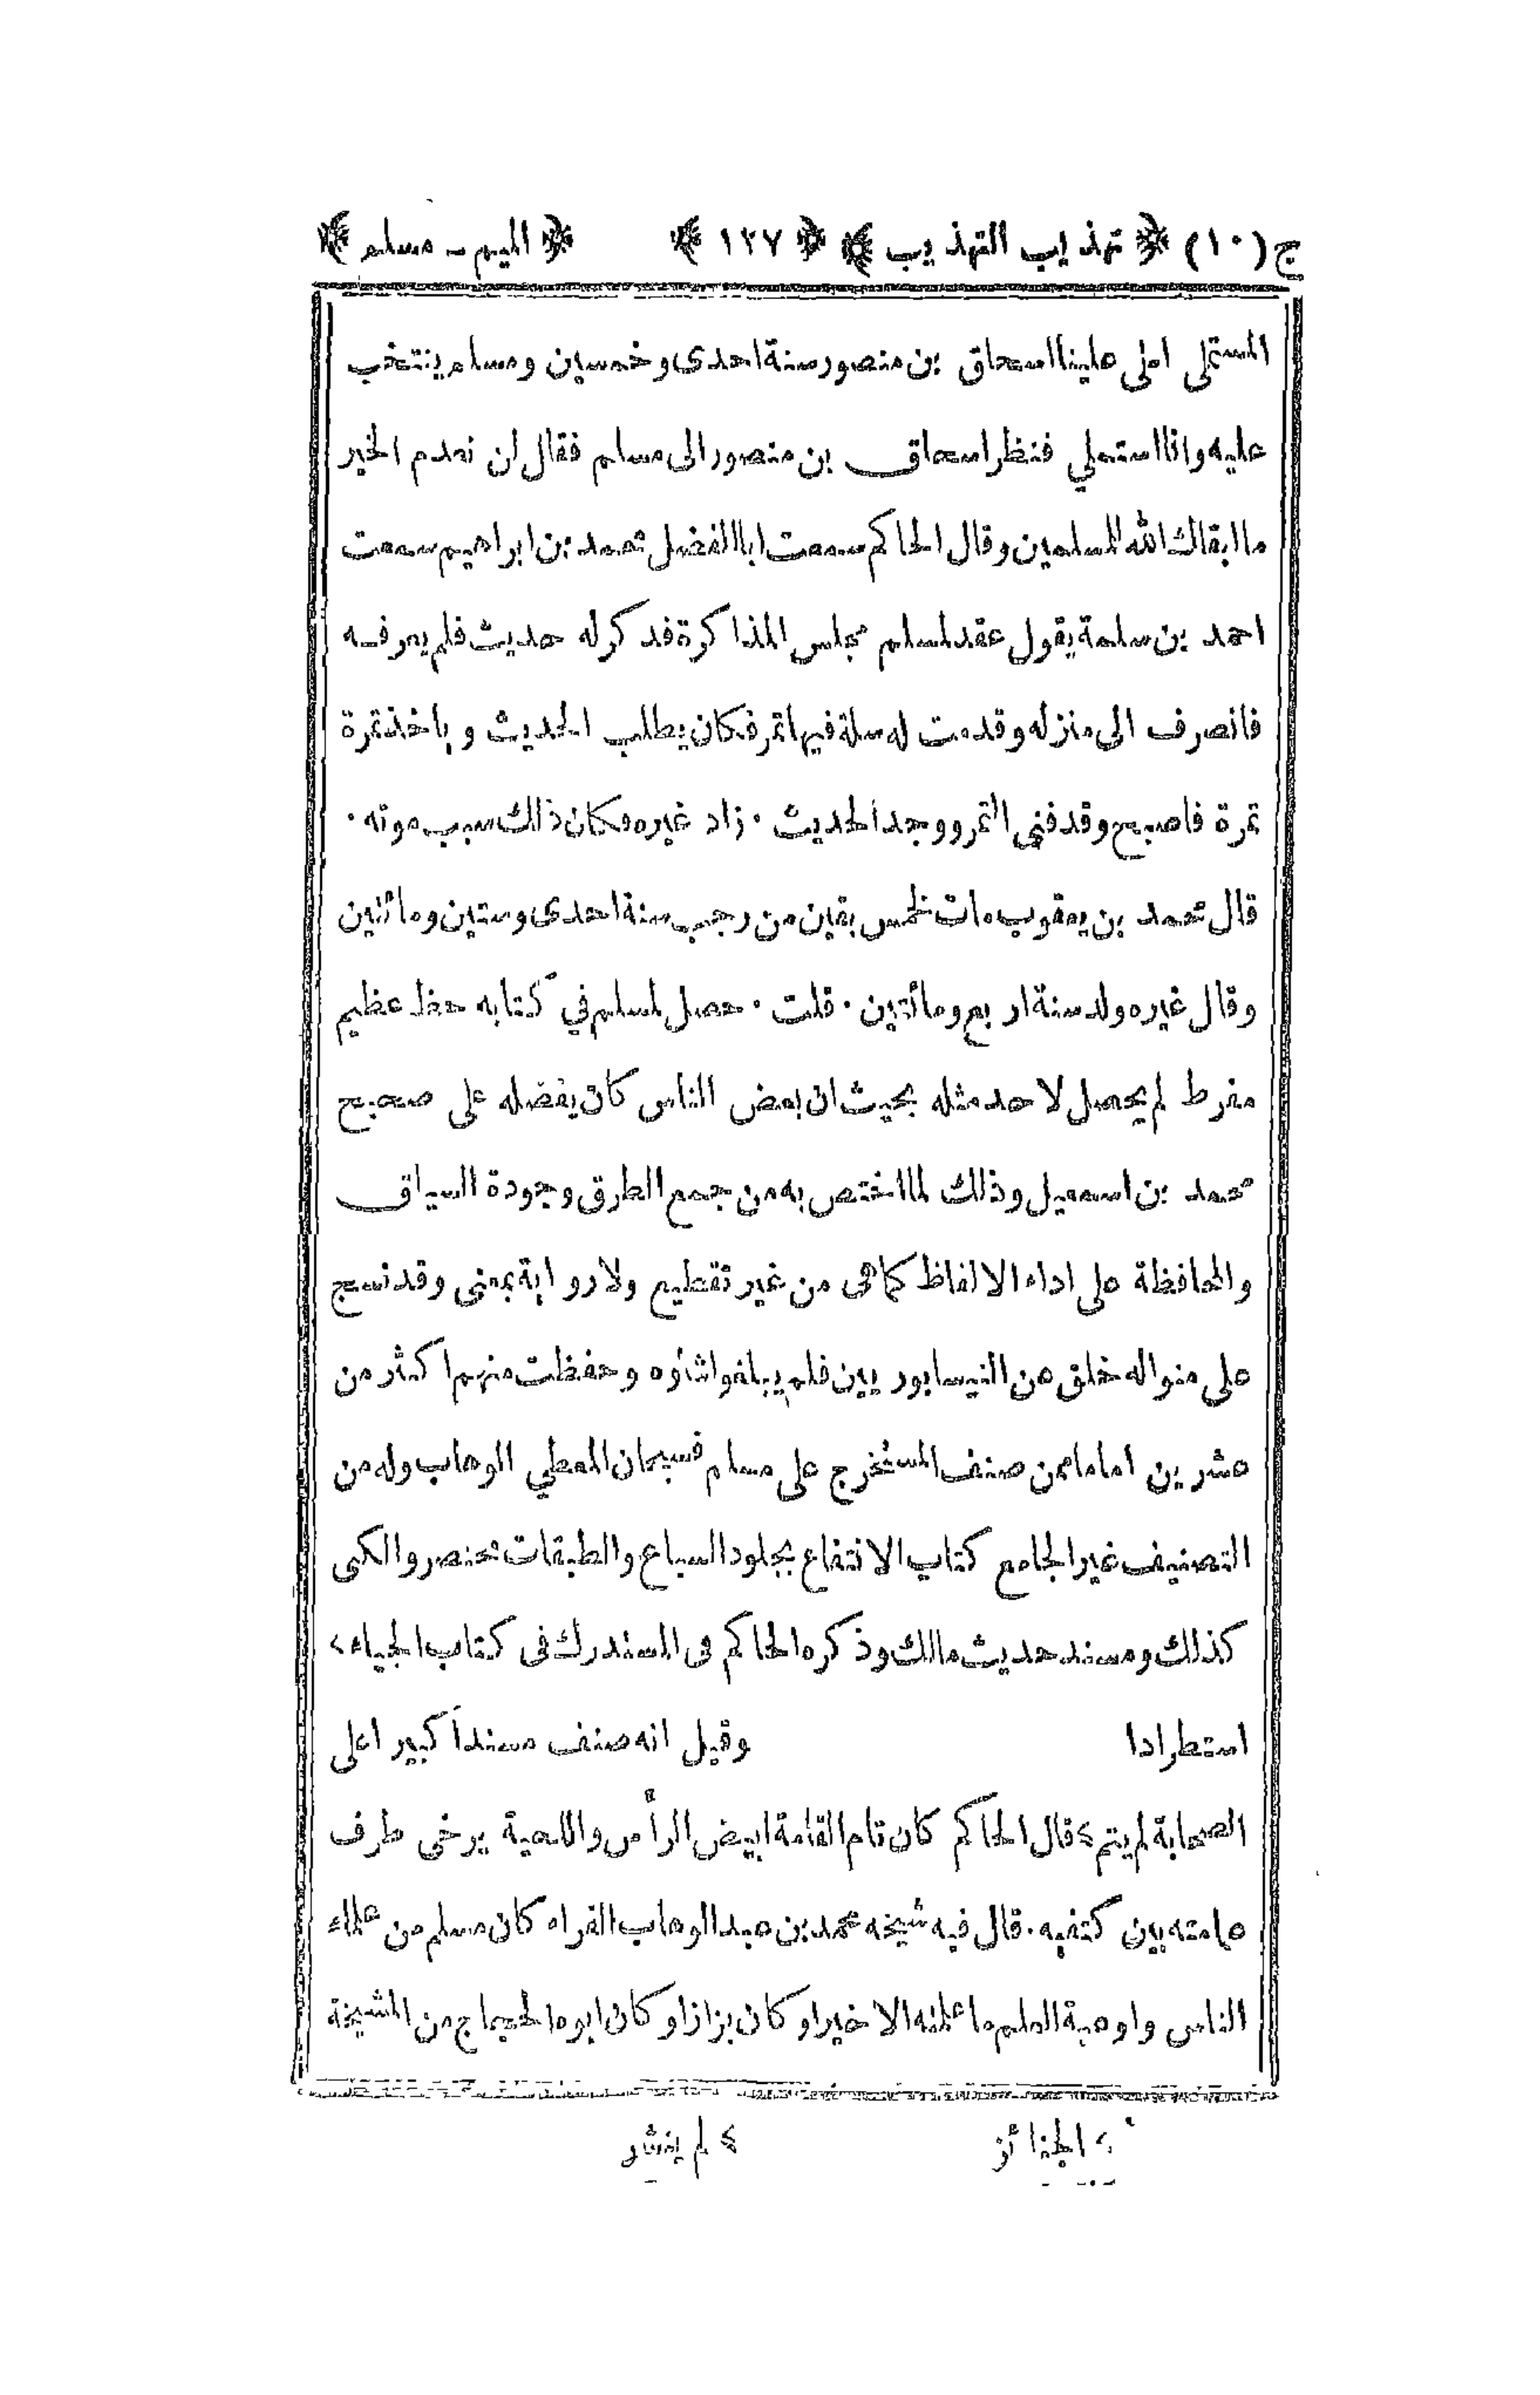 ج (١٠) ﴿ تهذيب التهذيب ﴾ ﴿ ١٢٧ ﴾ ﴿ الميم - مسلم ﴾
المستملي املى علينا اسحاق بن منصور سنة احدى وخمسين ومسلم ينتخب
عليه وانا استملي فنظر اسحاق بن منصور الى مسلم فقال لن نعدم الخير
ما ابقاك الله للمسلمين وقال الحاكم سمعت ابا الفضل محمد بن ابراهيم سمعت
احمد بن سلمة يقول عقد لمسلم مجلس المذاكرة فذكر له حديث فلم يعرفه
فانصرف الى منزله وقدمت له سلة فيها تمر فكان يطلب الحديث وياخذ تمرة
تمرة فاصبح وقد فنى التمر ووجد الحديث · زاد غيره فكان ذلك سبب موته ·
قال محمد بن يعقوب مات لخمس بقين من رجب سنة احدى وستين ومائتين
وقال غيره ولد سنة اربع ومائتين · قلت · حصل لمسلم في كتابه حظ عظيم
مفرط لم يحصل لاحد مثله بحيث ان بعض الناس كان يفضله على صحيح
محمد بن اسمعيل وذلك لما اختص به من جمع الطرق وجودة السياق
والمحافظة على اداء الالفاظ كما هى من غير تقطيع ولا رواية بمعنى وقد نسج
على منواله خلق عن النيسابوريين فلم يبلغوا شأوه وحفظت منهم اكثر من
عشرين اماما ممن صنف المستخرج على مسلم فسبحان المعطي الوهاب وله من
التصنيف غير الجامع كتاب الانتفاع بجلود السباع والطبقات مختصر والكنى
كذلك ومسند حديث مالك وذكره الحاكم في المستدرك في كتاب الجياء ٢
استطرادا وقيل انه صنف مسنداً كبيرا على
الصحابة لم يتم ٤ قال الحاكم كان تام القامة ابيض الرأس واللحية يرخى طرف
عمامته بين كتفيه · قال فيه شيخه محمد بن عبد الوهاب الفراء كان مسلم من علماء
الناس واوعية العلم ما علمته الا خيرا وكان بزازا وكان ابوه الحجاج من المشيخة
٢ الجنائز ٤ لم ينشر